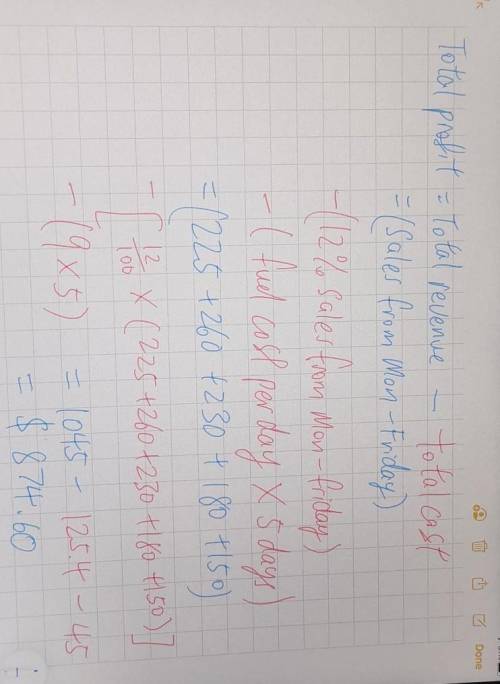 Total profit = Total revenue - Total cost
= (Sales from Mon-Friday)
- (12% sales from Mon-friday)
- (fuel cost per day x 5 days)
= (225 + 260 + 230 + 180 + 150)
- [12/100 x (225 + 260 + 230 + 180 + 150)]
- (9 x 5) = 1045 - 125.4 - 45
= $ 874.60
Done